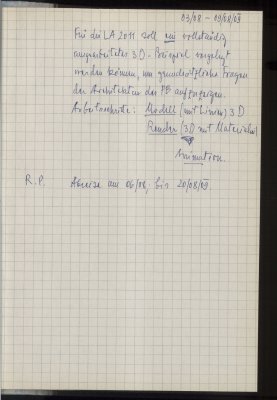 03/08 – 09/08/09
Für die LA 2011 soll ein vollständig
ausgearbeitetes 3D-Beispiel vorgelegt
werden können, um grundsätzliche Fragen
der Architektur des PP aufzuzeigen.
Arbeitsschritte: Modell (mit Linien) 3D
Render (3D mit Materialien)
Animation.
R.P. Abreise am 06/08, bis 20/08/09